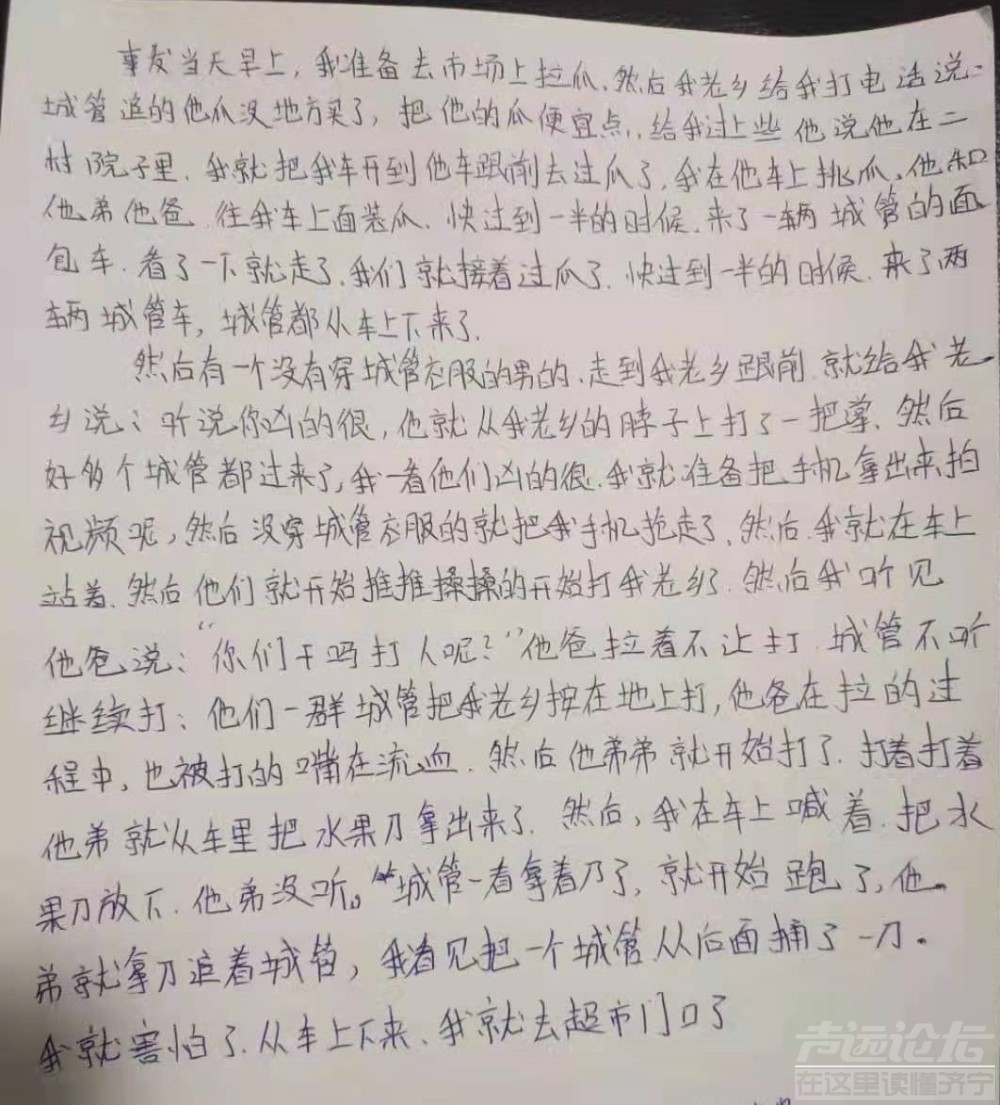 事发当天早上,我准备去市场上拉瓜.然后我老乡给我打电话说.
城管追的他瓜没地方买了,把他的瓜便宜点,给我过上些他说他在二
村院子里.我就把我车开到他车跟前去过瓜了,我在他车上挑瓜.他和
他弟他爸往我车上面装瓜.快过到一半的时候.来了一辆城管的面
包车.看了一下就走了.我们就接着过瓜了.快过到一半的时候.来了两
辆城管车,城管都从车上下来了.
然后有一个没有穿城管衣服的男的.走到我老乡跟前就给我老
乡说:听说你凶的很,他就从我老乡的脖子上打了一把掌.然后
好多个城管都过来了,我一看他们凶的很.我就准备把手机拿出来拍
视频呢,然后没穿城管衣服的就把我手机抢走了.然后.我就在车上
站着.然后他们就开始推推搡搡的开始打我老乡.然后我听见
他爸说:“你们干吗打人呢?”他爸拉着不让打.城管不听
继续打;他们一群城管把我老乡按在地上打,他爸在拉的过
程中,也被打的嘴在流血.然后他弟弟就开始打了.打着打着
他弟就从车里把水果刀拿出来了.然后,我在车上喊着.把水
果刀放下.他弟没听。城管一看拿着刀了,就开始跑了,他
弟就拿刀追着城管,我看见把一个城管从后面捅了一刀.
我就害怕了.从车上下来、我就去超市门口了
声远论坛
在这里读懂济宁